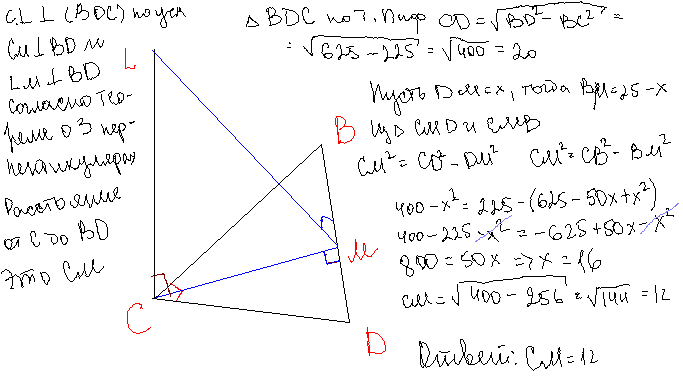 CL ⊥ (BDC) по усл
CM ⊥ BD и
LM ⊥ BD
согласно тео-
реме о 3 пер-
пендикулярах
Расстояние
от C до BD
это CM
L
B
M
C
D
Δ BDC по т. Пиф CD = √(BD² − BC²) =
= √(625 − 225) = √400 = 20
Пусть DM = x, тогда BM = 25 − x
Из Δ CMD и CMB
CM² = CD² − DM² CM² = CB² − BM²
400 − x² = 225 − (625 − 50x + x²)
400 − 225 − x² = −625 + 50x − x²
800 = 50x => x = 16
CM = √(400 − 256) = √144 = 12
Ответ: CM = 12